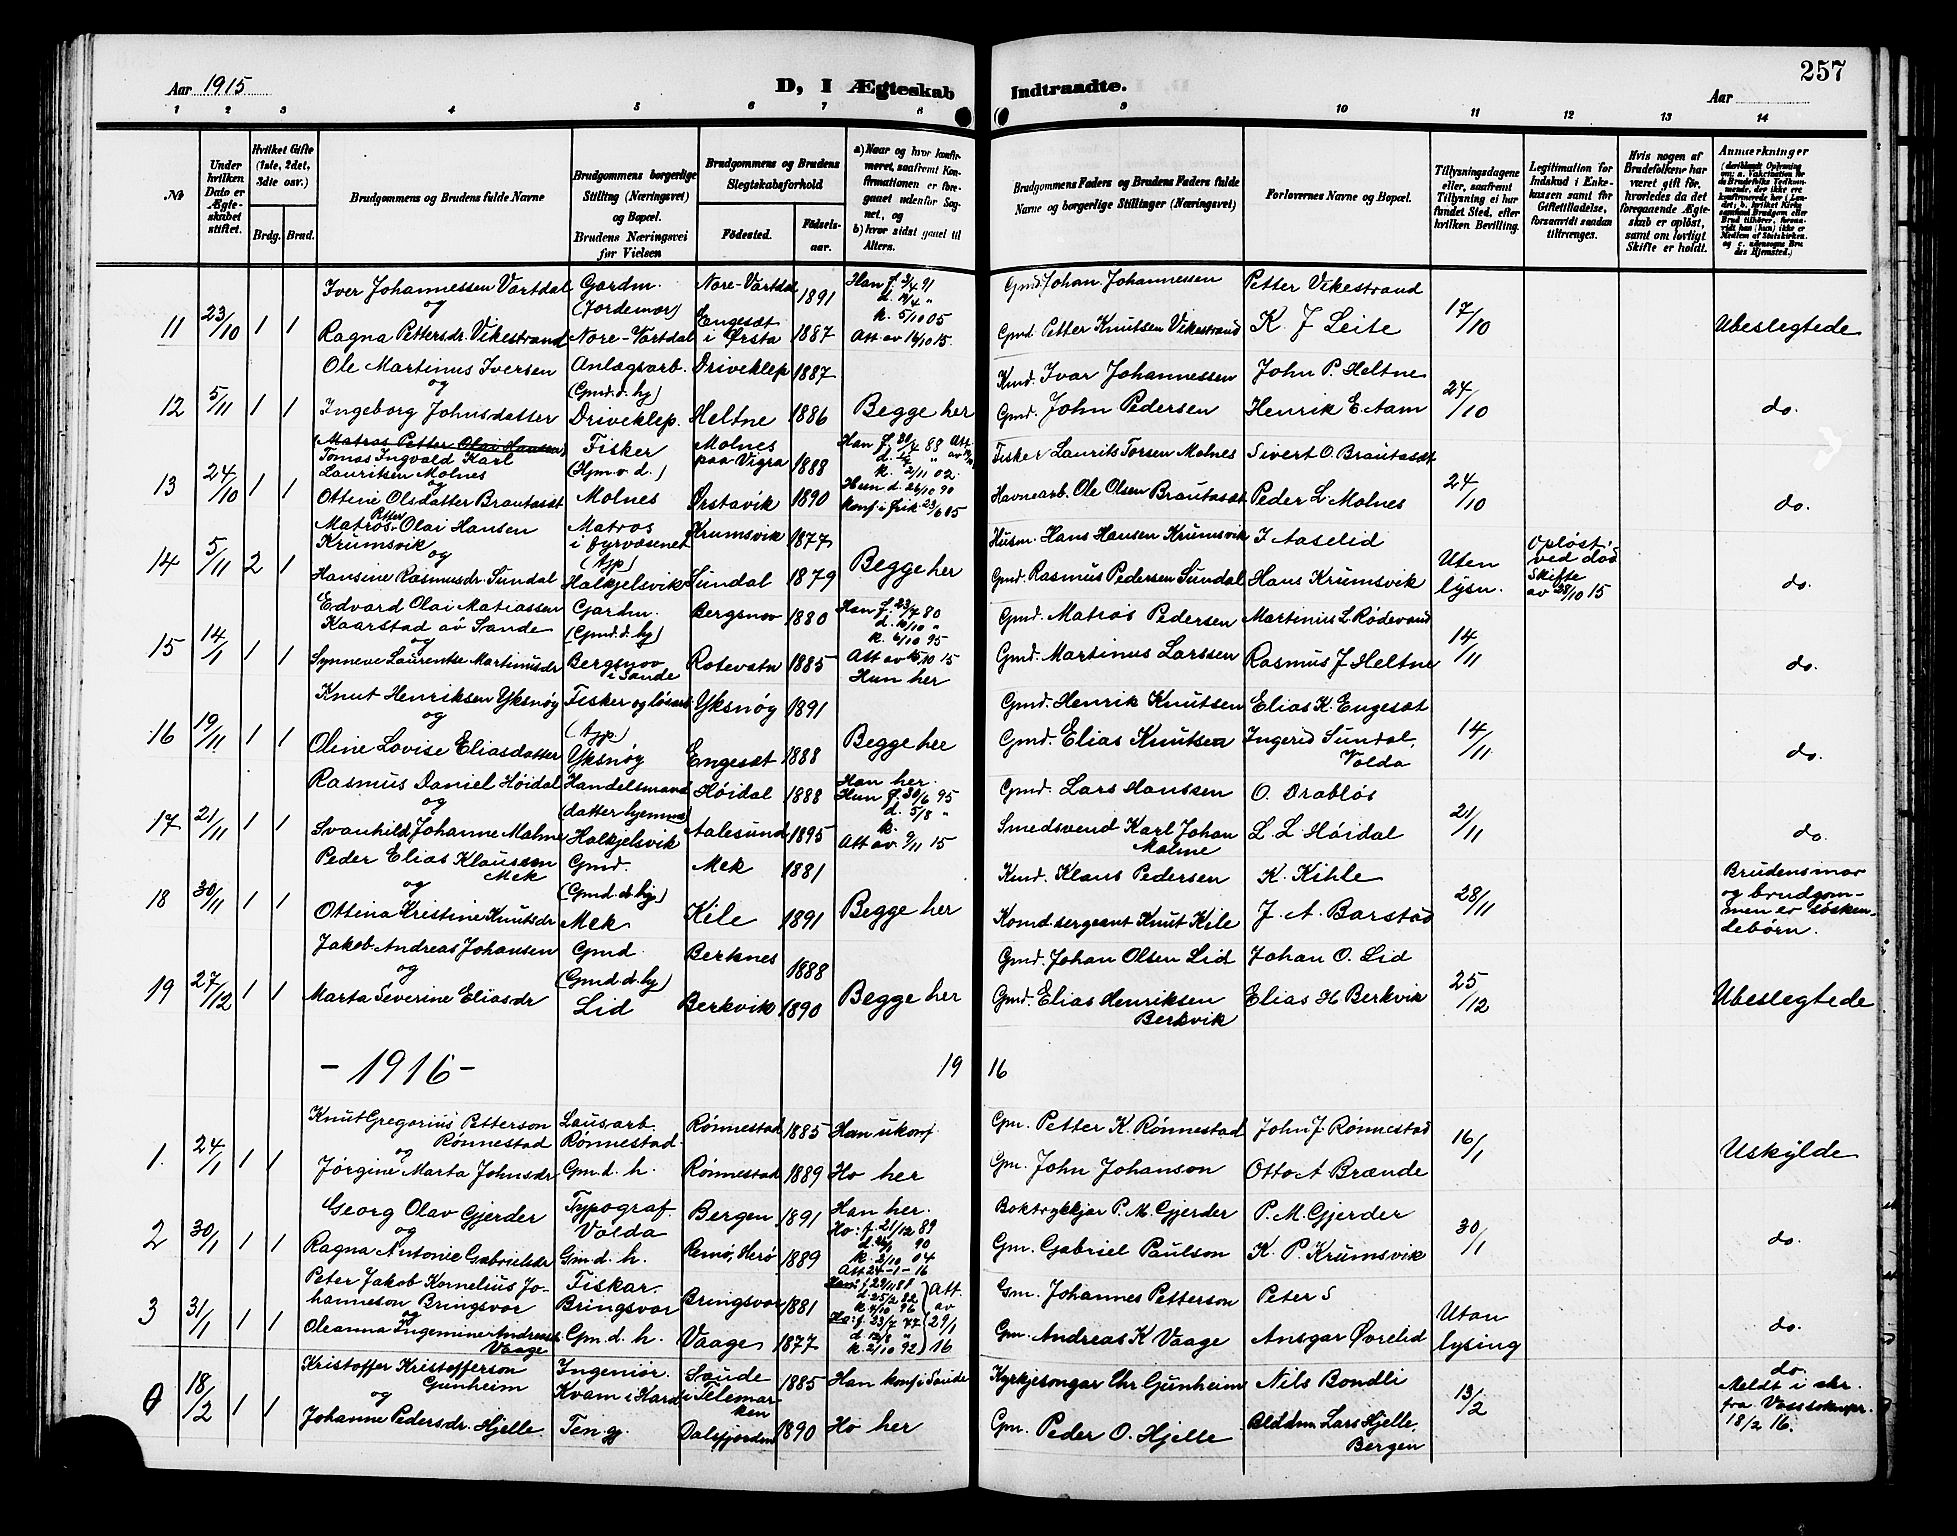 257
Aar 1915
D, I Ægteskab
Indtraadte.
Aar
1 2 3 4 5 6 7 8 9 10 11 12 13 14
№
Under hvilken Dato er Ægteskabet stiftet.
Hvilket Gifte (1ste, 2det, 3die osv.)
Brdg. Brud.
Brudgommens og Brudens fulde Navne
Brudgommens borgerlige Stilling (Næringsvei) og Bopæl. Brudens Næringsvei før Vielsen
Brudgommens og Brudens Slegtskabsforhold
Fødested. Fødselsaar.
a) Naar og hvor konfirmeret, saafremt Konfirmationen er foregaaet udenfor Sognet, og
b) hvor sidst gaaet til Alters.
Brudgommens Faders og Brudens Faders fulde Navne og borgerlige Stillinger (Næringsvei)
Forlovernes Navne og Bopæl.
Tillysningsdagene eller, saafremt Tillysning ei har fundet Sted, efter hvilken Bevilling.
Legitimation for Indskud i Enkekassen samt for Giftetilladelse, forsaavidt saadan tiltrænges.
Hvis nogen af Brudefolkene har været gift før, hvorledes da det foregaaende Ægteskab er opløst, samt om lovligt Skifte er holdt.
Anmærkninger
Iver Johannessen Vartdal Gardm. Nore-Vartdal 1891 Han f. 3/4 91 Gmd. Johan Johannessen Petter Vikestrand
og (Jordemor) d. 12/4 "
11 23/10 1 1 Engesæt k. 5/10 05 17/10
Ragna Pettersdr. Vikestrand Nore-Vartdal i Ørsta 1887 Att av 14/10 15. Gmd Petter Knutsen Vikestrand K. J Leite Ubeslegtede
Ole Martinus Iversen Anlægsarb. Driveklep 1887 Kmd. Ivar Johannessen John P. Heltne
og (Gmd. d. hj)
12 5/11 1 1 Ingeborg Johnsdatter Driveklep. Heltne 1886 Begge her Gmd. John Pedersen Henrik E. Aam 24/10 do.
(Matros Petter Olai Hansen) Fisker Molnes Han f. 20/7 88 Att
Tomas Ingvald Karl paa Vigra 1888 Fisker Laurits Torsen Molnes Sivert O. Brautaset
Lauritsen Molnes (Hjm. v. d.) k. 2/11 02.
13 24/10 1 1 og Hun d. 26/10 90 24/10
Ottine Olsdatter Brautaset Molnes Ørstavik 1890 konf i Frik 23/6 05 Havnearb. Ole Olsen Brautaset Peder L Molnes do.
Matros Petter Olai Hansen Matros Krumsvik 1877 Husm. Hans Hansen Krumsvik J Aaselid Opløst
Krumsvik i fyrvæsenet ved død
14 5/11 2 1 og Begge her Uten lysn. Skifte av 28/10 15
Hansine Rasmusdr. Sundal Halkjelsvik Sundal 1879 Gmd. Rasmus Pedersen Sundal Hans Krumsvik do.
Edvard Olai Matiassen Gardm. Bergsnov 1880 Han f. 23/7 80 Gmd. Matias Pedersen Martinus L Rødevand
Kaarstad av Sande (Gmd. d. hj) d. 10/10 "
15 14/1 1 1 og k. 6/10 95 14/11
Synneve Laurentse Martinusdr Bergsnov i Sande Rotevatn 1885 Att av 15/10 15 Gmd. Martinus Larssen Rasmus J Heltne do.
Hun her
Knut Henriksen Yksnøy Fisker og løsarb Yksnøy 1891 Gmd. Henrik Knutsen Elias K. Engesæt
16 19/11 1 1 og Begge her 14/11
Oline Lovise Eliasdatter Yksnøy Engesæt 1888 Gmd. Elias Knutsen Ingerid Sundal, Volda do.
Rasmus Daniel Høidal Handelsmand Høidal 1888 Han her. Gmd. Lars Hanssen O. Drabløs
og (datter hjemme) Hun f. 30/6 95
17 21/11 1 1 d. 5/8 " k. 21/11
Svanhild Johanne Malme Halkjelsvik Aalesund 1895 Att av 9/11 15 Smedsvend Karl Johan Malme L. L Høidal do.
Peder Elias Klaussen Mek Gmd. Mek 1881 Kmd. Klaus Pedersen K. Kihle Brudensmor
og (Gmd. d. hj) og brudgom-
18 30/11 1 1 Begge her 28/11 men er søsken-
Ottina Kristine Knutsdr Mek Kile 1891 Komd. sergeant Knut Kile J. A. Barstad debørn.
Jakob Andreas Johansen Gmd. Berknes 1888 Gmd. Johan Olsen Lid Johan O. Lid
og (Gmd. d. hj)
19 27/12 1 1 Marta Severine Eliasdr Lid Berkvik 1890 Begge her Gmd. Elias Henriksen Berkvik Elias H Berkvik 25/12 Ubeslegtede
- 1916 - 19 16
Knut Gregorius Petterson Rønnestad Lausarb. Rønnestad Rønnestad 1885 Han ukonf. Gm. Petter K. Rønnestad John J. Rønnestad
1. 24/1 1 1 og 16/1 Uskylde
Jørgine Marta Johnsdr Gm. d. h. Rønnestad 1889 Ho her Gm. John Johanson Otto A Brænde
Georg Olav Gjerder Typograf Volda Bergen 1891 Han her. Boktrykkjar P. M. Gjerder P. M. Gjerder
2 30/1 1 1 og Ho: f. 21/12 89 30/1 do.
Ragna Antonie Gabrielsdr Gm. d. h. Remø, Herø 1889 k. 2/10 04 Gm. Gabriel Paulson K. P. Krumsvik
Att 24-1-16
Peter Jakob Kornelius Jo- Fiskar Bringsvor 1881 d. 25/2 82 Att. av 29/1 16 Gm. Johannes Petterson Peter S
hanneson Bringsvor Bringsvor k. 4/10 96
3 31/1 1 1 og Ho: f. 23/7 77 Utan lysing do.
Oleanna Ingemine Andreasd. Vaage Gm. d. h. Vaage 1877 d. 12/8 " k. 2/10 92 Gm. Andreas K Vaage Ansgar Øvrelid
Kristoffer Kristofferson Gunheim Ingeniør. Kvam i Hard Saude i Telemarken 1885 Han konf i Saude Kyrkjesongar Chr Gunheim Nils Bondli do
18/2 1 1 og 13/2 Meldt i skr. fra Vossesoknepr. 18/2 16.
Johanne Pedersdr. Hjelle Ten gj. Dalsfjorden 1890 Ho her Gm. Peder O. Hjelle Lars Hjelle, Bergen